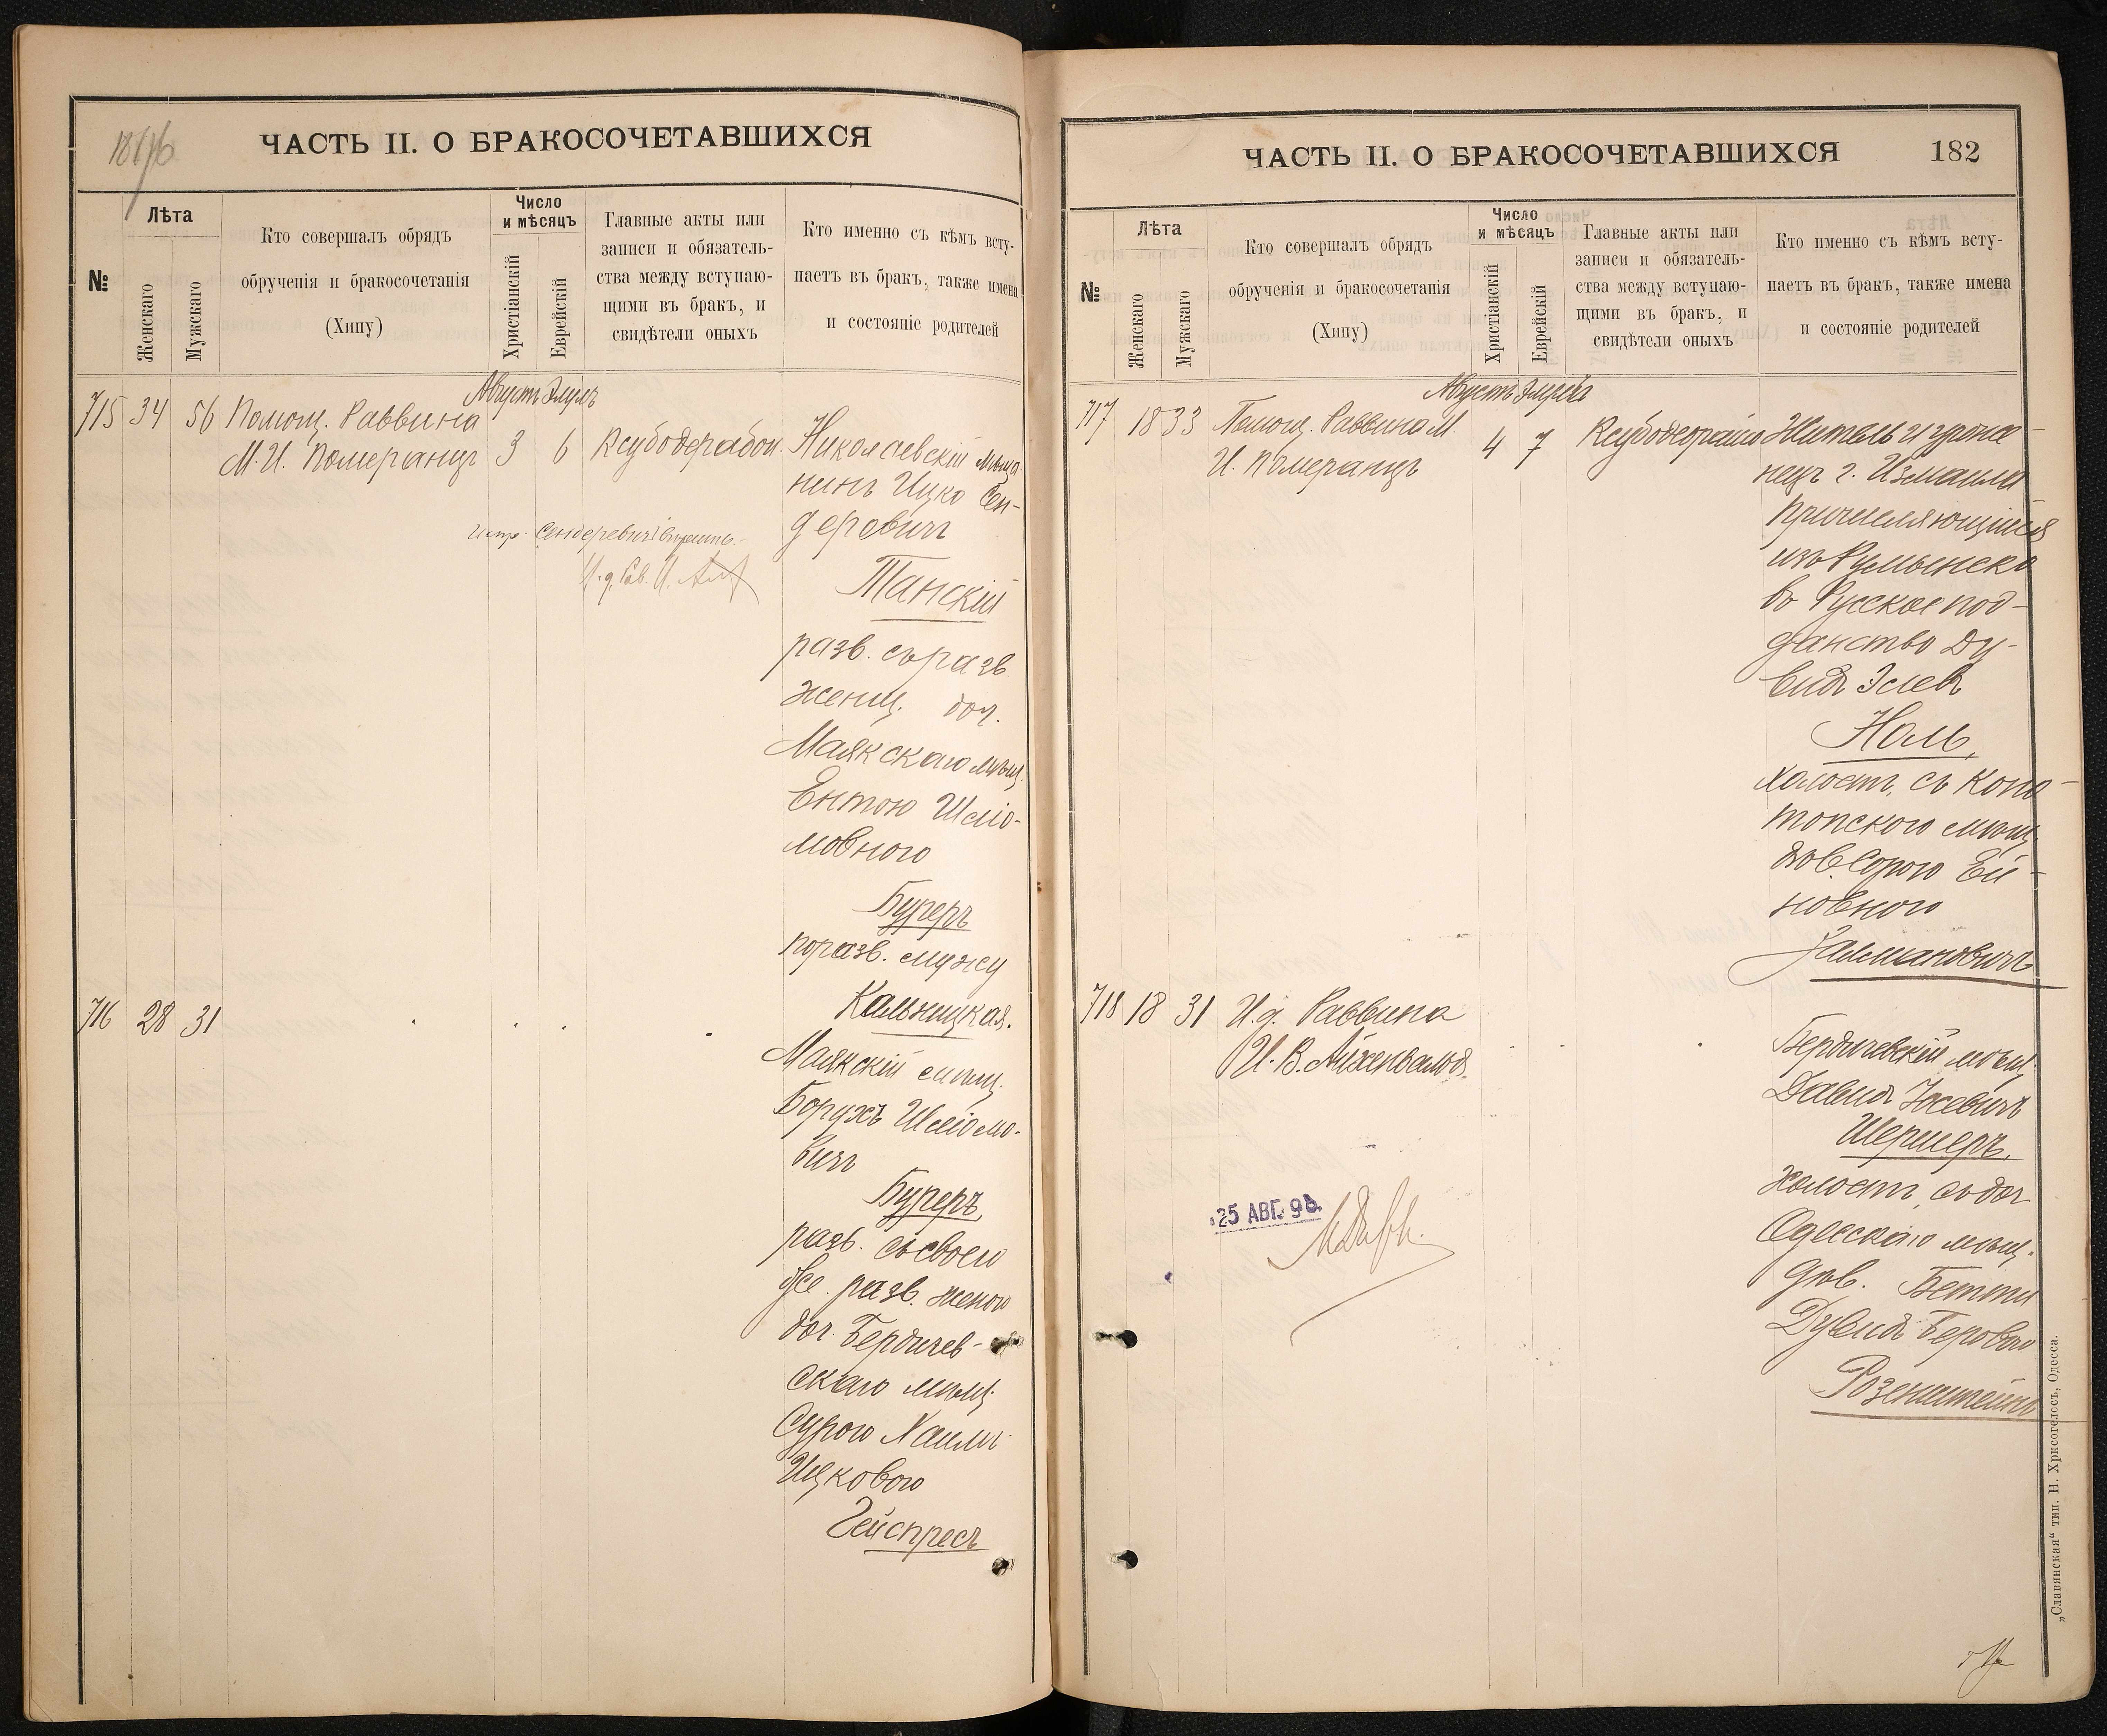 ЧАСТЬ II. О БРАКОСОЧЕТАВШИХСЯ
№
Лѣта
Женскаго
Мужскаго
Кто совершалъ обрядъ
обрученія и бракосочетанія
(Хипу)
Число
и мѣсяцъ
Христіанскій
Еврейскій
Главные акты или
записи и обязатель-
ства между вступаю-
щими въ бракъ, и
свидѣтели оныхъ
Кто именно съ кѣмъ всту-
паетъ въ бракъ, также имена
и состояніе родителей
Августъ Элулъ
715 34 56 Помощ. Раввина
М. И. Померанцъ
3 6
Николаевскій мѣща
нинъ Ицко Сен-
деровичъ
Танскій
разв. съ разв.
женщ. доч.
Маякскаго мѣщ.
Ентою Шліо-
мовною
Бугеръ
по разв. мужу
Кальницкая.
716 28 31
Маякскій мѣщ.
Борухъ Шліомо-
вичъ
Бугеръ,
разв. съ своею
же разв. женою
доч. Бердичев-
скаго мѣщ.
Сурою Хаимъ
Ицковою
Гейспресъ
ЧАСТЬ II. О БРАКОСОЧЕТАВШИХСЯ
182
№
Лѣта
Женскаго
Мужскаго
Кто совершалъ обрядъ
обрученія и бракосочетанія
(Хипу)
Число
и мѣсяцъ
Христіанскій
Еврейскій
Главные акты или
записи и обязатель-
ства между вступаю-
щими въ бракъ, и
свидѣтели оныхъ
Кто именно съ кѣмъ всту-
паетъ въ бракъ, также имена
и состояніе родителей
Августъ Элулъ
717 18 33 Помощ. Раввина М.
И. Померанцъ
4 7
Житель и уроже-
нецъ г. Измаила
причисляющійся
изъ Румынско
въ Русское под-
данство Ду-
видъ
Ноль,
холостъ, съ Коно-
топскаго мѣщ.
дѣв. Сорою
новною
Залмановичъ
718 18 31 И. д. Раввина
И. В. Айхенвальдъ
Бердичевскій мѣщ.
Давидъ Іосевичъ
Шермеръ,
холостъ, съ доч.
Одесскаго мѣщ.
дѣв. Бетти
Дувидъ Беровою
Розенштейнъ
25 АВГ. 98
„Славянская“ тип. Н. Хрисогелосъ, Одесса.